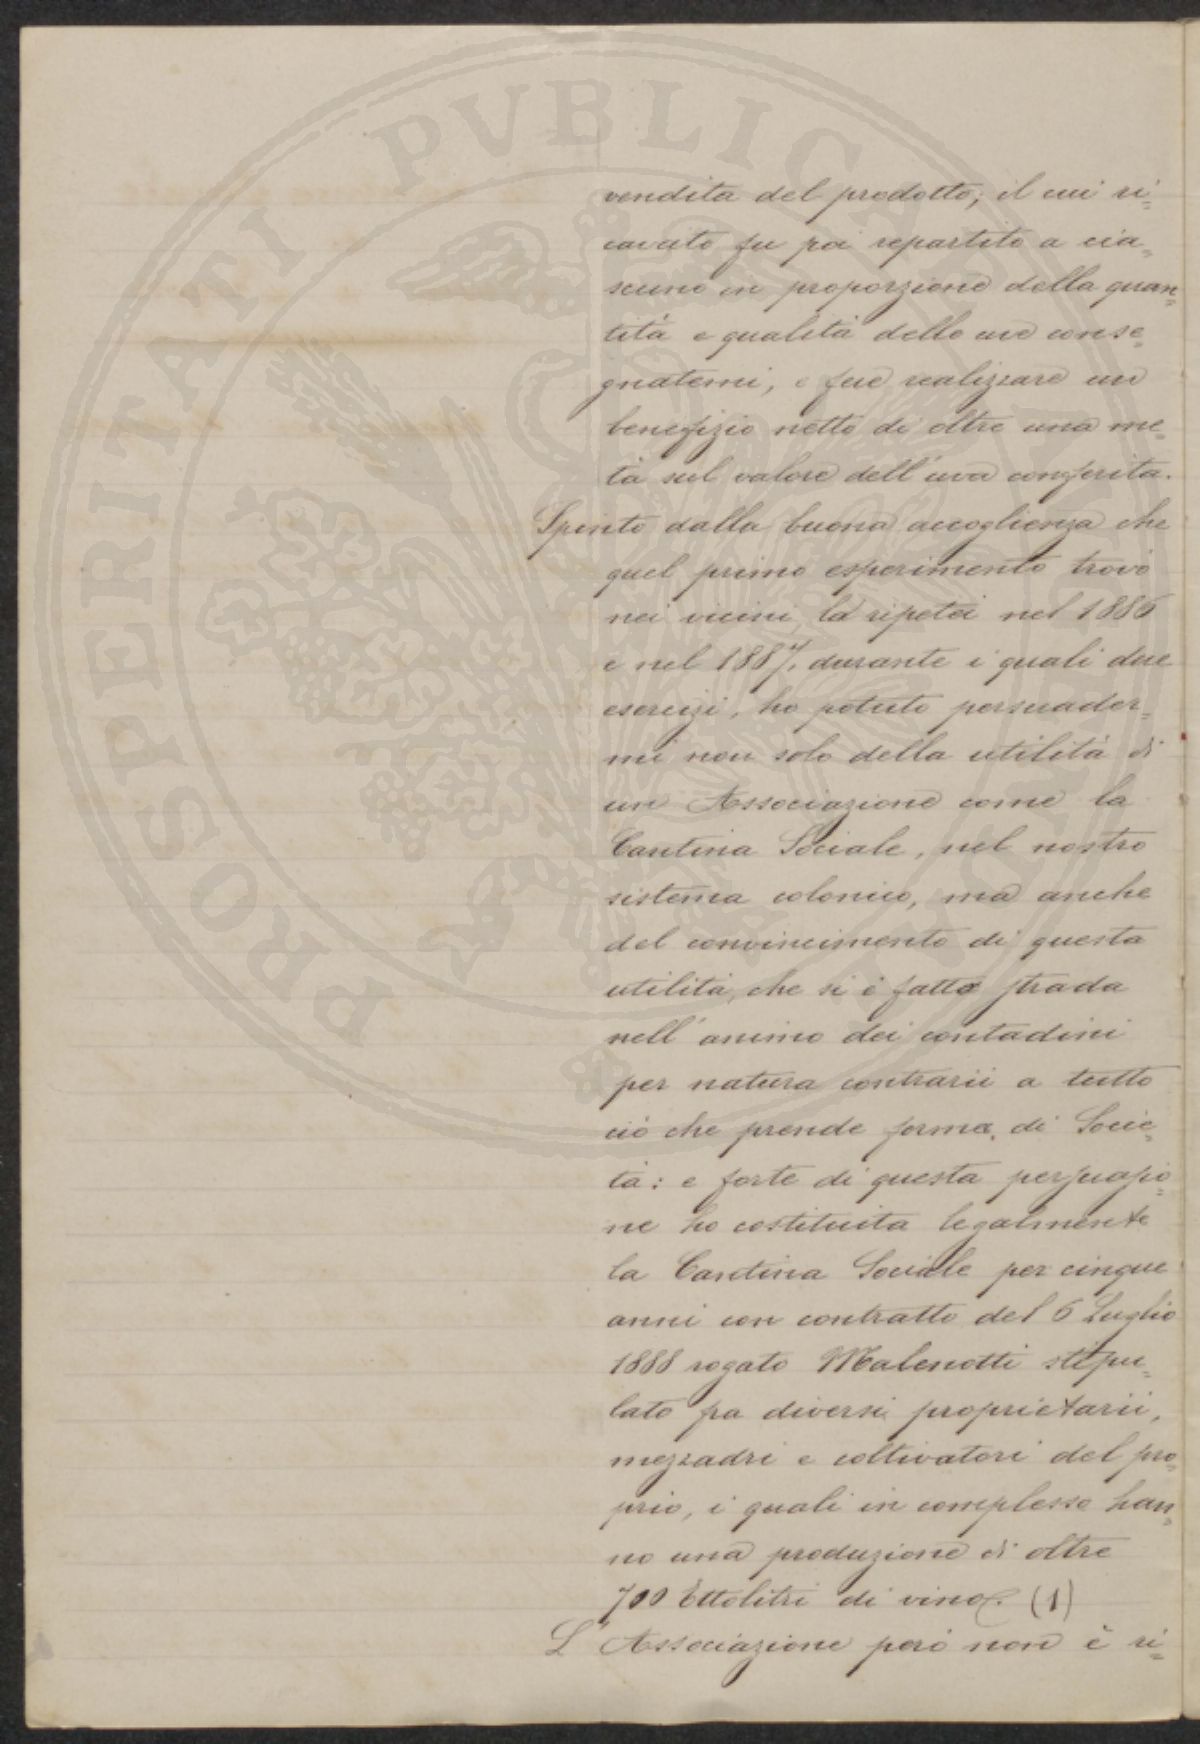 PROSPERITATI PVBLICAE
vendita del prodotto; il cui ri=
cavato fu poi repartito a cia=
scuno in proporzione della quan=
tità e qualità delle uve conse=
gnatemi, e feci realizzare un
benefizio netto di oltre una me=
tà sul valore dell'uva conferita.
Spinto dalla buona accoglienza che
quel primo esperimento trovò
nei vicini, lo ripetei nel 1886
e nel 1887, durante i quali due
esercizi, ho potuto persuader=
mi non solo della utilità di
un Associazione come la
Cantina Sociale, nel nostro
sistema colonico, ma anche
del convincimento di questa
utilità, che si è fatto strada
nell'animo dei contadini
per natura contrarii a tutto
ciò che prende forma di Socie=
tà: e forte di questa persuasio=
ne ho costituita legalmente
la Cantina Sociale per cinque
anni con contratto del 6 Luglio
1888 rogato Malenotti stipu=
lato fra diversi proprietarii,
mezzadri e coltivatori del pro=
prio, i quali in complesso han=
no una produzione di oltre
700 Ettolitri di vino. (1)
L'Associazione però non è ri=